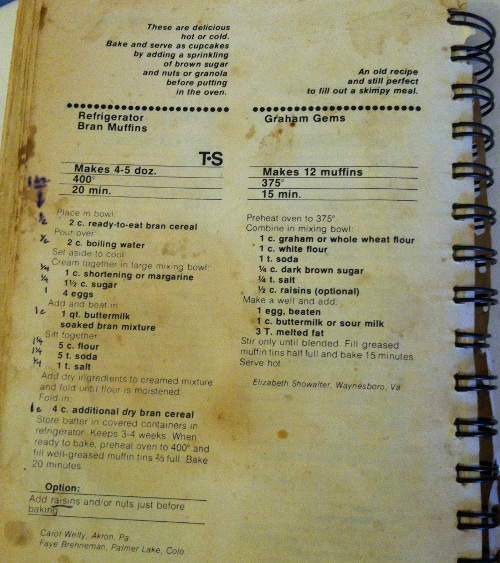 These are delicious
hot or cold.
Bake and serve as cupcakes
by adding a sprinkling
of brown sugar
and nuts or granola
before putting
in the oven.
Refrigerator
Bran Muffins
T·S
Makes 4-5 doz.
400°
20 min.
Place in bowl:
½ 2 c. ready-to-eat bran cereal
Pour over:
½ 2 c. boiling water
Set aside to cool.
Cream together in large mixing bowl:
¼ 1 c. shortening or margarine
¾ 1½ c. sugar
1 4 eggs
Add and beat in:
1c 1 qt. buttermilk
soaked bran mixture
Sift together:
1¼ 5 c. flour
1¼ 5 t. soda
¼ 1 t. salt
Add dry ingredients to creamed mixture
and fold until flour is moistened.
Fold in:
1c 4 c. additional dry bran cereal
Store batter in covered containers in
refrigerator. Keeps 3-4 weeks. When
ready to bake, preheat oven to 400° and
fill well-greased muffin tins ⅔ full. Bake
20 minutes.
Option:
Add raisins and/or nuts just before
baking.
Carol Welty, Akron, Pa.
Faye Brenneman, Palmer Lake, Colo.
An old recipe
and still perfect
to fill out a skimpy meal.
Graham Gems
Makes 12 muffins
375°
15 min.
Preheat oven to 375°.
Combine in mixing bowl:
1 c. graham or whole wheat flour
1 c. white flour
1 t. soda
¼ c. dark brown sugar
¼ t. salt
½ c. raisins (optional)
Make a well and add:
1 egg, beaten
1 c. buttermilk or sour milk
3 T. melted fat
Stir only until blended. Fill greased
muffin tins half full and bake 15 minutes.
Serve hot.
Elizabeth Showalter, Waynesboro, Va.